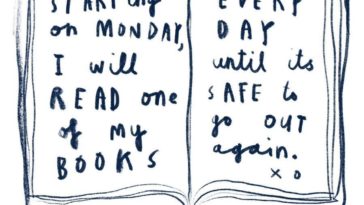 STARTing
on MONDAY,
I will
READ one
of my
BOOKS
EVERY
DAY
until its
SAFE to
go OUT
again.
x o